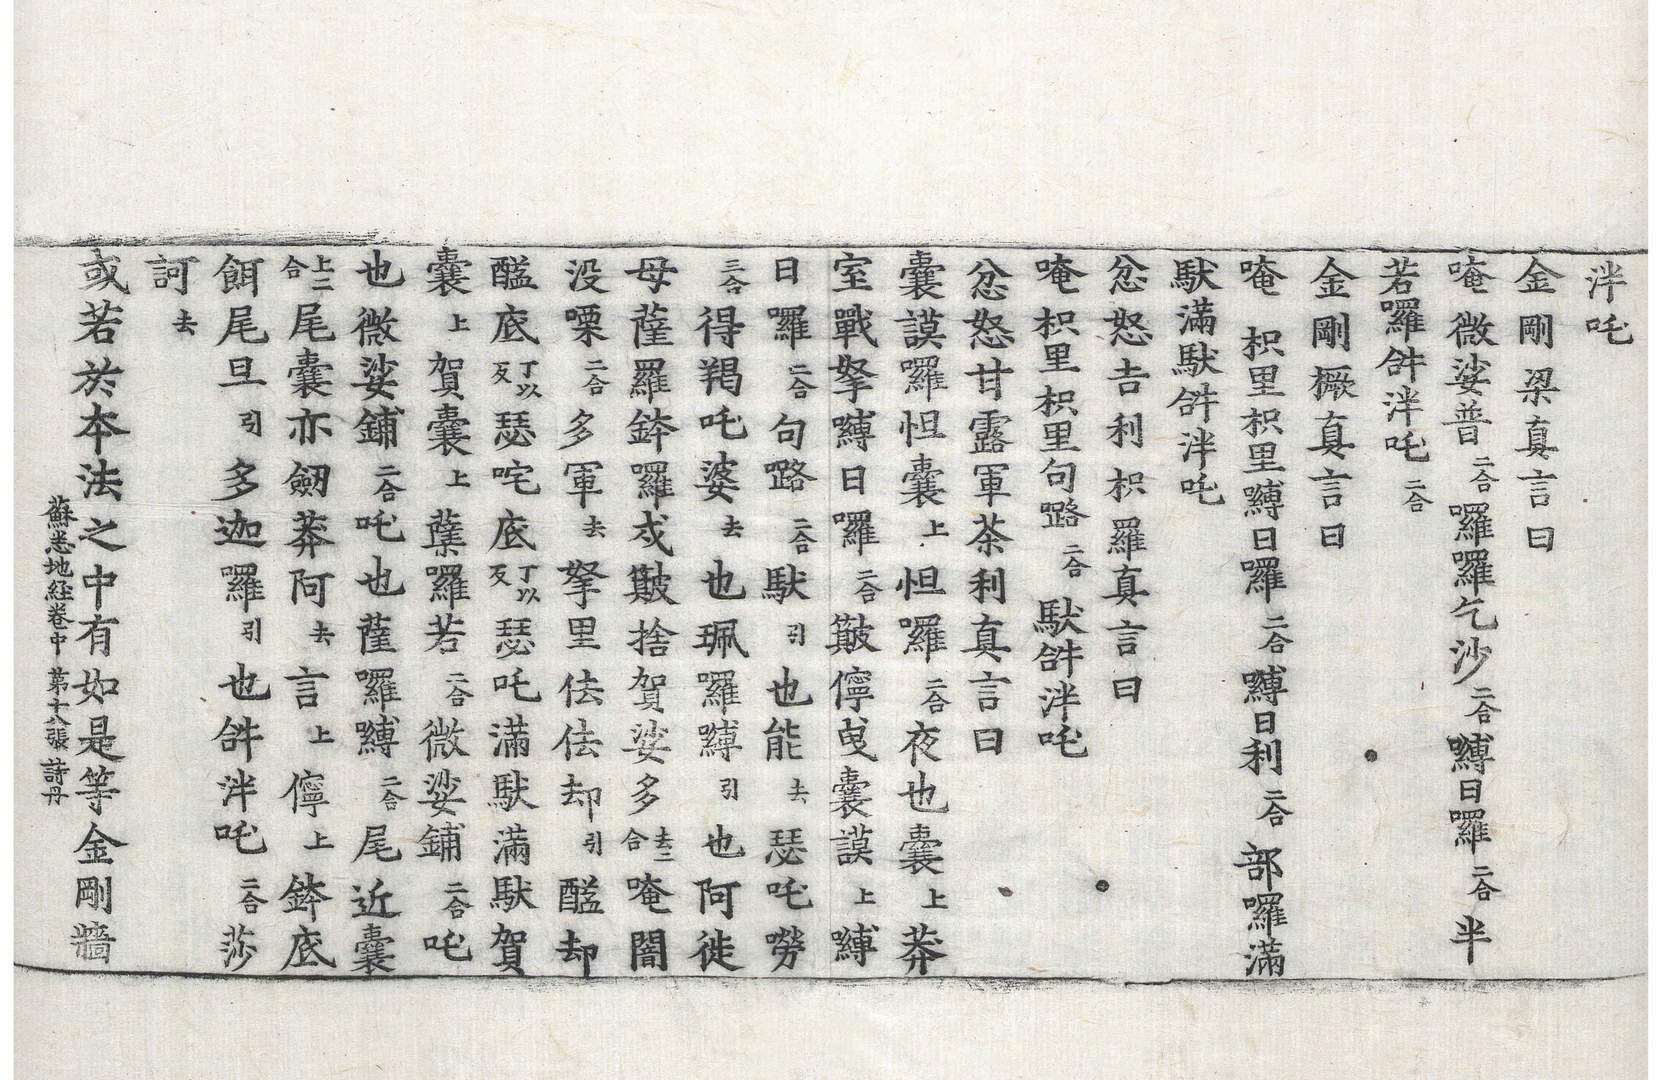 泮吒
金剛梁真言曰
唵微娑普二合囉囉乞沙二合嚩日囉二合半
若囉𤙖泮吒二合
金剛橛真言曰
唵枳里枳里嚩日囉二合嚩日利二合部囉滿
馱滿馱𤙖泮吒
忿怒吉利枳羅真言曰
唵枳里枳里句嚕二合馱𤙖泮吒
忿怒甘露軍荼利真言曰
囊謨囉怛囊上怛囉二合夜也囊上莽
室戰拏嚩日囉二合皤儜曳囊謨上嚩
日囉二合句嚕二合馱引也能去瑟吒嘮
三合得羯吒婆去也珮囉嚩引也阿徙
母薩羅鉢囉戍皤捨賀娑多去二合唵闇
没㗚二合多軍去拏里佉佉却引醯却
醯底丁以反瑟咤底丁以反瑟吒滿馱滿馱賀
囊上賀囊上蘖囉若二合微娑鋪二合吒
也微娑鋪二合吒也薩囉嚩二合尾近囊
上二合尾囊亦劒莽阿去言上儜上鉢底
餌尾旦引多迦囉引也𤙖泮吒二合莎
訶去
或若於本法之中有如是等金剛牆
蘇悉地経卷中 第十八張 詩丹